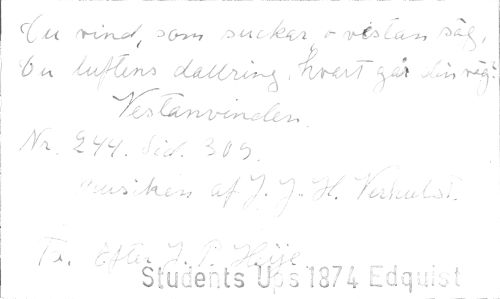 Du vind, som suckar, o vestan säg,
Du luftens dallring, hvart går din väg?
Vestanvinden.
Nr. 244. Sid. 309.
Musiken af J. J. H. Verhulst.
Tr. Efter J. P. Heije
Students Ups 1874 Edquist